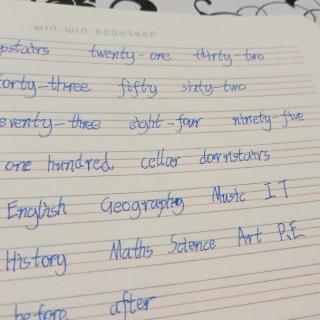 WIN-WIN BOOKSHOP
pstairs twenty-one thirty-two
orty-three fifty sixty-two
eventy-three eight-four ninety-five
one hundred cellar downstairs
English Geography Music IT
History Maths Science Art P.E
before after